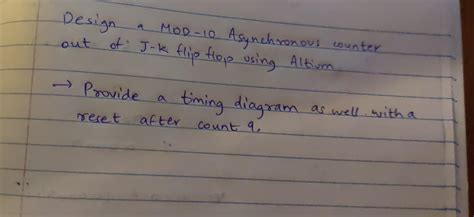 Design a MOD-10 Asynchronous counter
out of J-K flip flop using Altium
→ Provide a timing diagram as well with a
reset after count 9.